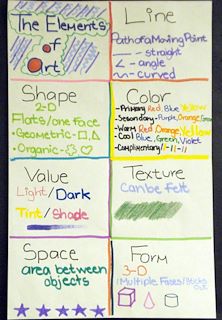 The Elements
of
Art
Line
Path of a Moving Point
— straight
- angle
~ curved
Shape
2-D
Flats/one face
• Geometric-
• Organic-
Color
-Primary Red, Blue Yellow
-Secondary-Purple, Orange, Green
-Warm Red, Orange, Yellow
-Cool Blue, Green, Violet
-Complimentary/
Value
Light/Dark
Tint/Shade
Texture
Can be felt
Space
area between
objects
Form
3-D
/Multiple Faces/